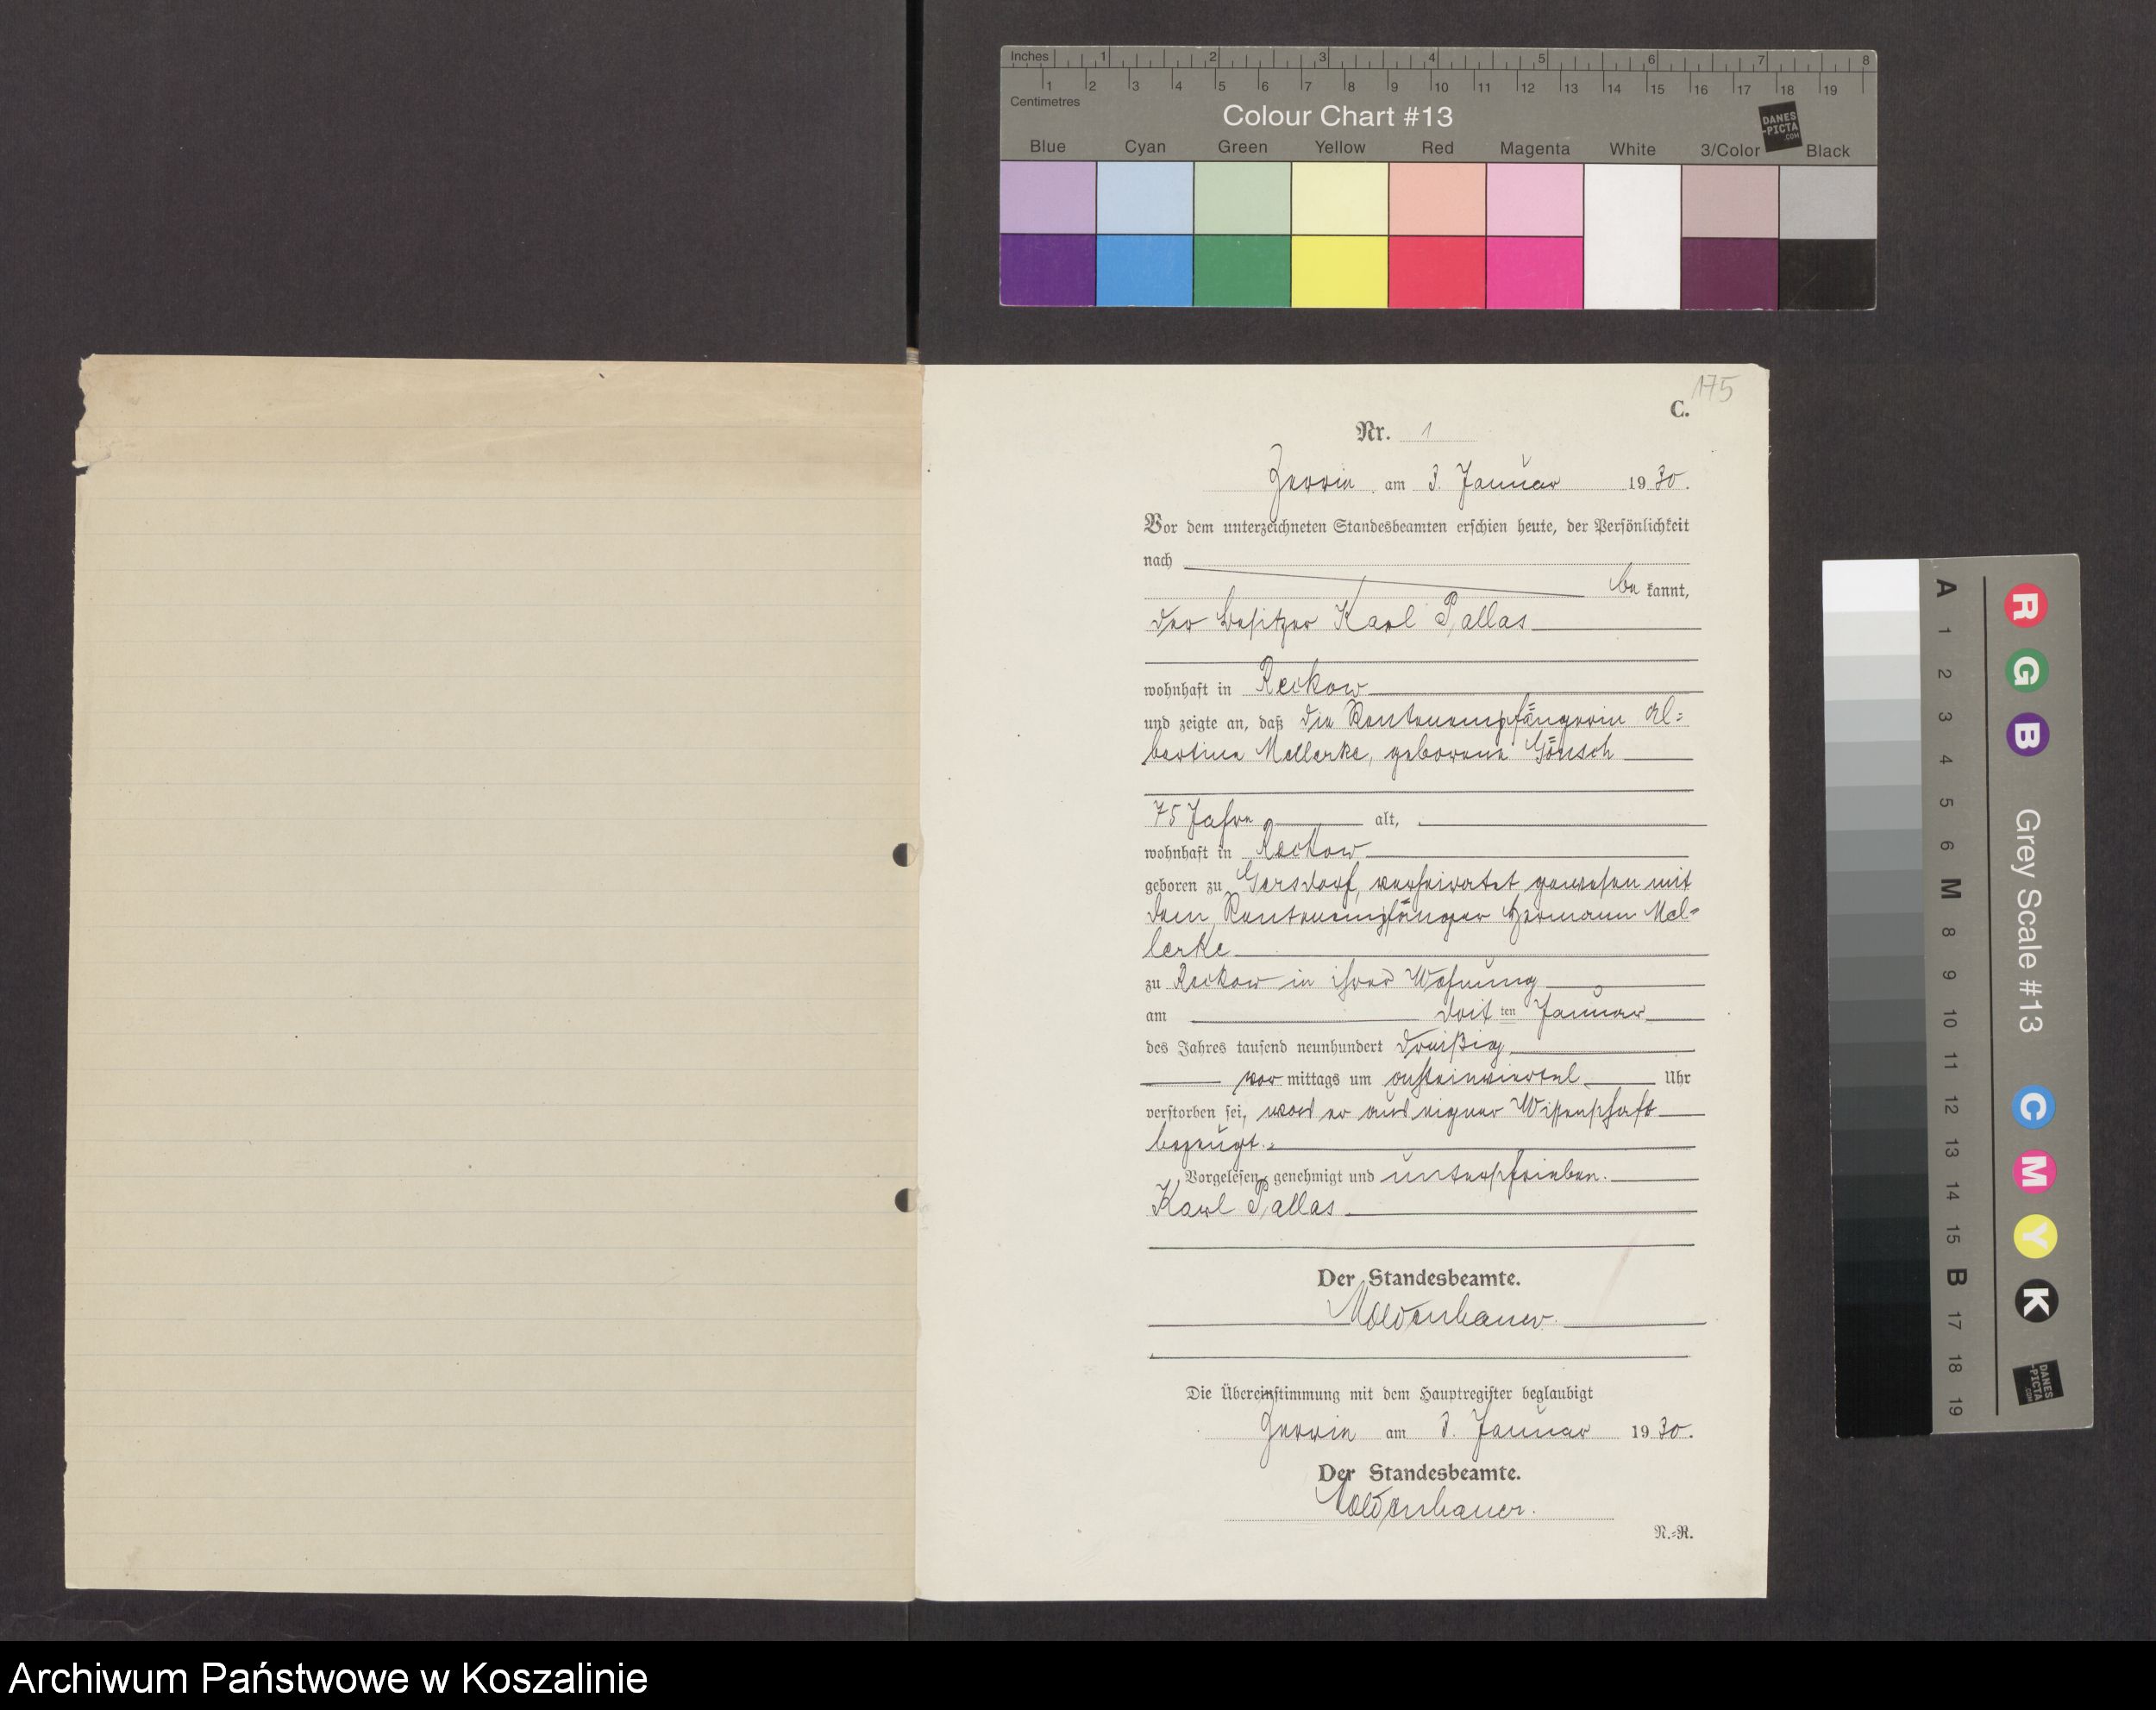 Inches 1 2 3 4 5 6 7 8
1 2 3 4 5 6 7 8 9 10 11 12 13 14 15 16 17 18 19
Centimetres
Colour Chart #13
DANES-PICTA.COM
Blue Cyan Green Yellow Red Magenta White 3/Color Black
175
C.
Nr. 1
Zerrin am 3. Januar 1930.
Vor dem unterzeichneten Standesbeamten erschien heute, der Persönlichkeit
nach
be kannt,
der Besitzer Karl Pallas
wohnhaft in Reckow
und zeigte an, daß die Rentenempfängerin Al=
bertine Mellerke, geborene Gönsch
75 Jahre alt,
wohnhaft in Reckow
geboren zu Gersdorf, verheiratet gewesen mit
dem Rentenempfänger Hermann Mel=
lerke
zu Reckow in ihrer Wohnung
am drit ten Januar
des Jahres tausend neunhundert dreißig
vor mittags um achteinviertel Uhr
verstorben sei, was er aus eigner Wissenschaft
bezeugt.
Vorgelesen, genehmigt und unterschrieben.
Karl Pallas
Der Standesbeamte.
Moldenhauer.
Die Übereinstimmung mit dem Hauptregister beglaubigt
Zerrin am 3. Januar 1930.
Der Standesbeamte.
Moldenhauer.
N.=R.
R G B Grey Scale #13 C M Y K
DANES-PICTA.COM
A 1 2 3 4 5 6 M 8 9 10 11 12 13 14 15 B 17 18 19
Archiwum Państwowe w Koszalinie